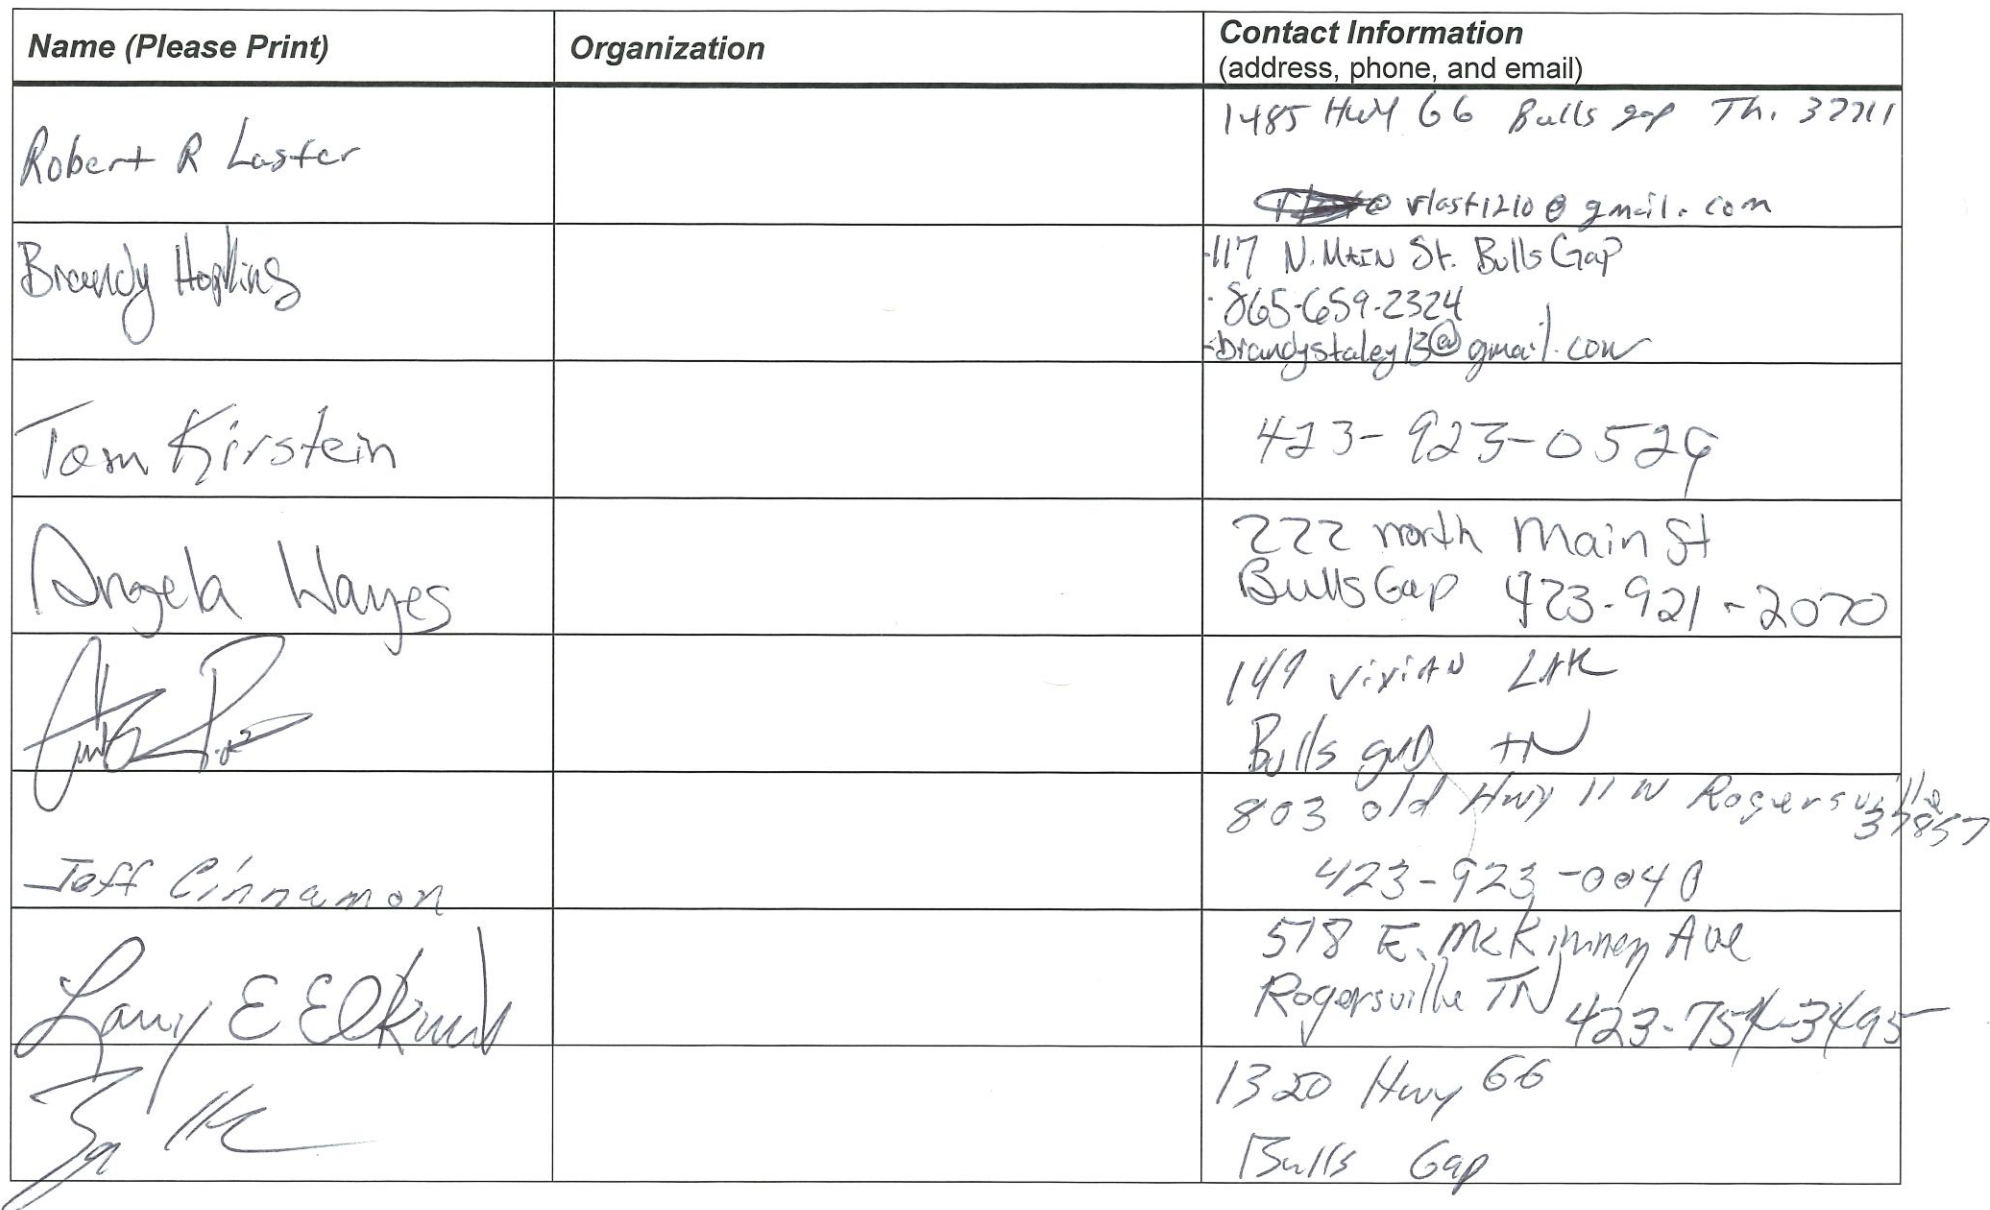 Name (Please Print) Organization Contact Information
(address, phone, and email)
Robert R Laster
1485 Hwy 66 Bulls gap Tn. 37711
rlast1210@gmail.com
Brandy Hopkins
-117 N. MAIN St. Bulls Gap
· 865-659-2324
-brandystaley13@gmail.com
Tom Kirstein
423-923-0529
Angela Wayes
222 north Main St
Bulls Gap 423-921-2070
149 ViviAN
Bulls gap tN
803 old Hwy 11 W Rogersville
37857
Jeff Cinnamon
423-923-0040
518 E. McKinney Ave
Larry E
Rogersville TN 423-754-3495
1320 Hwy 66
Bulls Gap